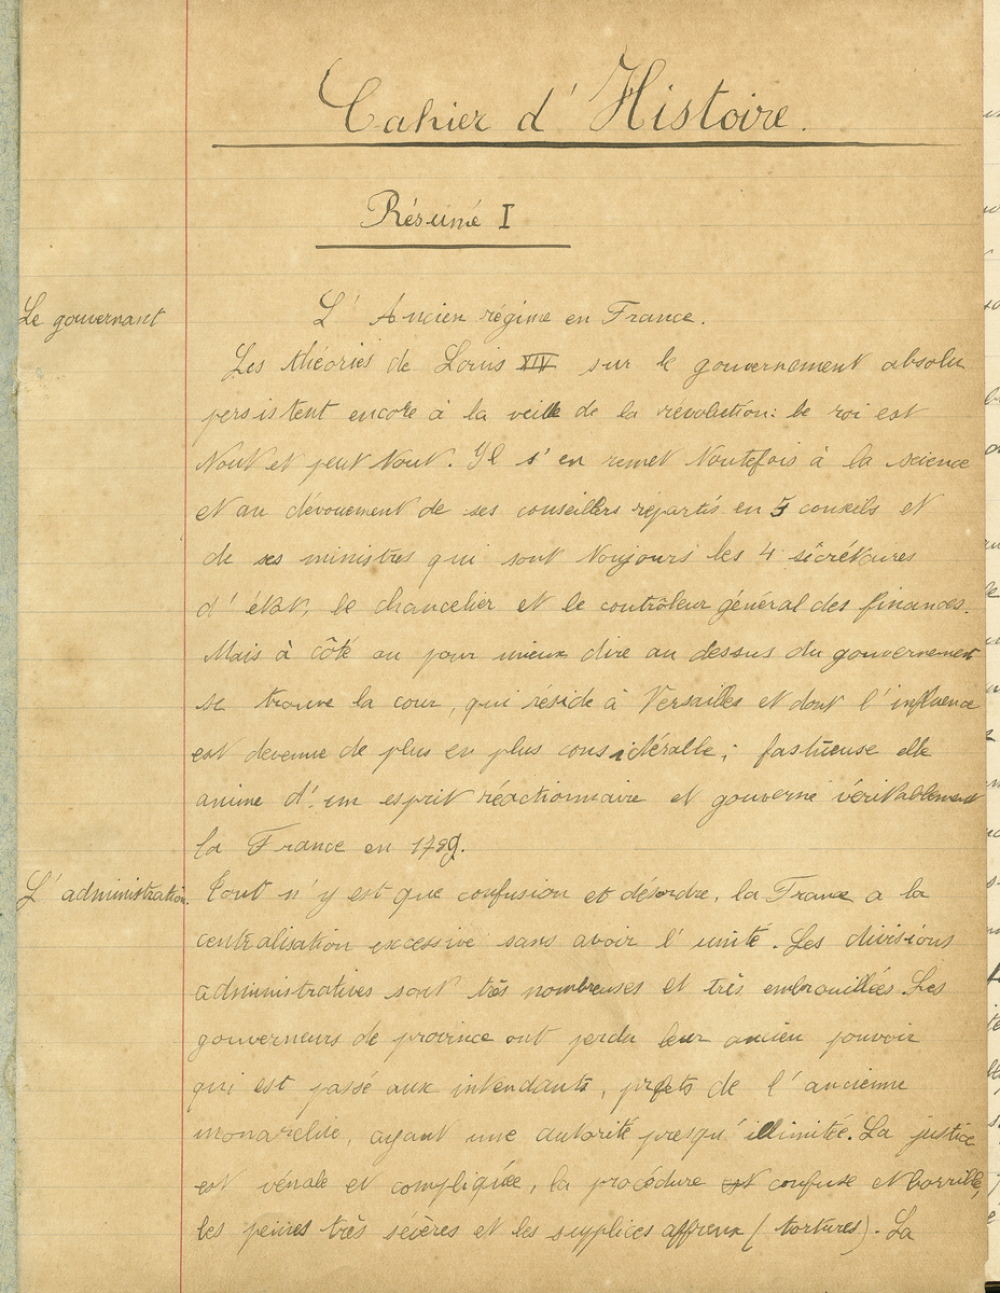 Cahier d'Histoire.
Résumé I
Le gouvernant
L'Ancien régime en France.
Les théories de Louis XIV sur le gouvernement absolu
persistent encore à la veille de la révolution: le roi est
tout et peut tout. Il s'en remet toutefois à la science
et au dévouement de ses conseillers répartis en 5 conseils et
de ses ministres qui sont toujours les 4 sécrétaires
d'état, le chancelier et le contrôleur général des finances.
Mais à côté ou pour mieux dire au dessus du gouvernement
se trouve la cour, qui réside à Versailles et dont l'influence
est devenue de plus en plus considérable; fastueuse elle
anime d'un esprit réactionnaire et gouverne véritablement
la France en 1789.
L'administration.
Tout n'y est que confusion et désordre, la France a la
centralisation excessive sans avoir l'unité. Les divisions
administratives sont très nombreuses et très embrouillées. Les
gouverneurs de province ont perdu leur ancien pouvoir
qui est passé aux intendants, préfets de l'ancienne
monarchie, ayant une autorité presqu'illimitée. La justice
est vénale et compliquée, la procédure est confuse et horrible,
les peines très sévères et les supplices affreux (tortures). La